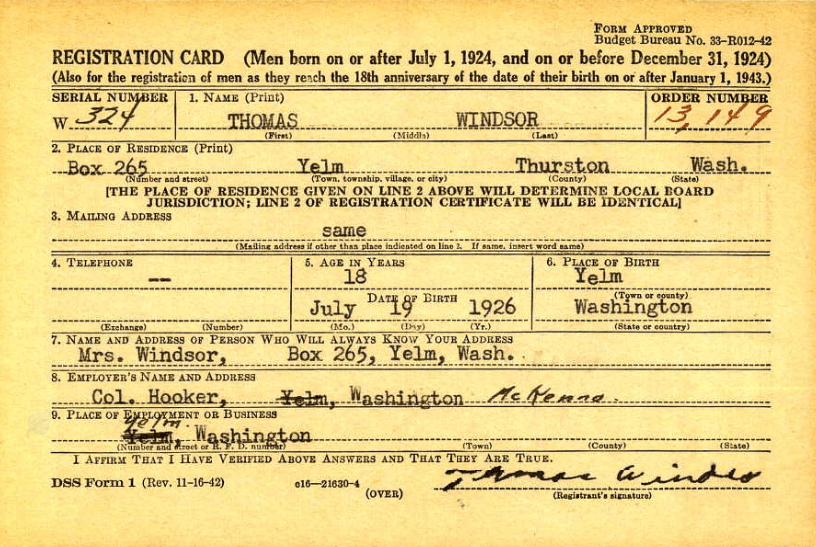 FORM APPROVED
Budget Bureau No. 33-R012-42
REGISTRATION CARD (Men born on or after July 1, 1924, and on or before December 31, 1924)
(Also for the registration of men as they reach the 18th anniversary of the date of their birth on or after January 1, 1943.)
SERIAL NUMBER 1. NAME (Print) ORDER NUMBER
W 324 THOMAS WINDSOR 13,149
(First) (Middle) (Last)
2. PLACE OF RESIDENCE (Print)
Box 265 Yelm Thurston Wash.
(Number and street) (Town, township, village, or city) (County) (State)
[THE PLACE OF RESIDENCE GIVEN ON LINE 2 ABOVE WILL DETERMINE LOCAL BOARD
JURISDICTION; LINE 2 OF REGISTRATION CERTIFICATE WILL BE IDENTICAL]
3. MAILING ADDRESS
same
(Mailing address if other than place indicated on line 2. If same, insert word same)
4. TELEPHONE 5. AGE IN YEARS 6. PLACE OF BIRTH
-- 18 Yelm
DATE OF BIRTH (Town or county)
July 19 1926 Washington
(Exchange) (Number) (Mo.) (Day) (Yr.) (State or country)
7. NAME AND ADDRESS OF PERSON WHO WILL ALWAYS KNOW YOUR ADDRESS
Mrs. Windsor, Box 265, Yelm, Wash.
8. EMPLOYER'S NAME AND ADDRESS
Col. Hooker, Yelm, Washington McKenna.
9. PLACE OF EMPLOYMENT OR BUSINESS
Yelm.
Yelm, Washington
(Number and street or R. F. D. number) (Town) (County) (State)
I AFFIRM THAT I HAVE VERIFIED ABOVE ANSWERS AND THAT THEY ARE TRUE.
DSS Form 1 (Rev. 11-16-42) c16—21630-4
(OVER)
Thomas Windso
(Registrant's signature)